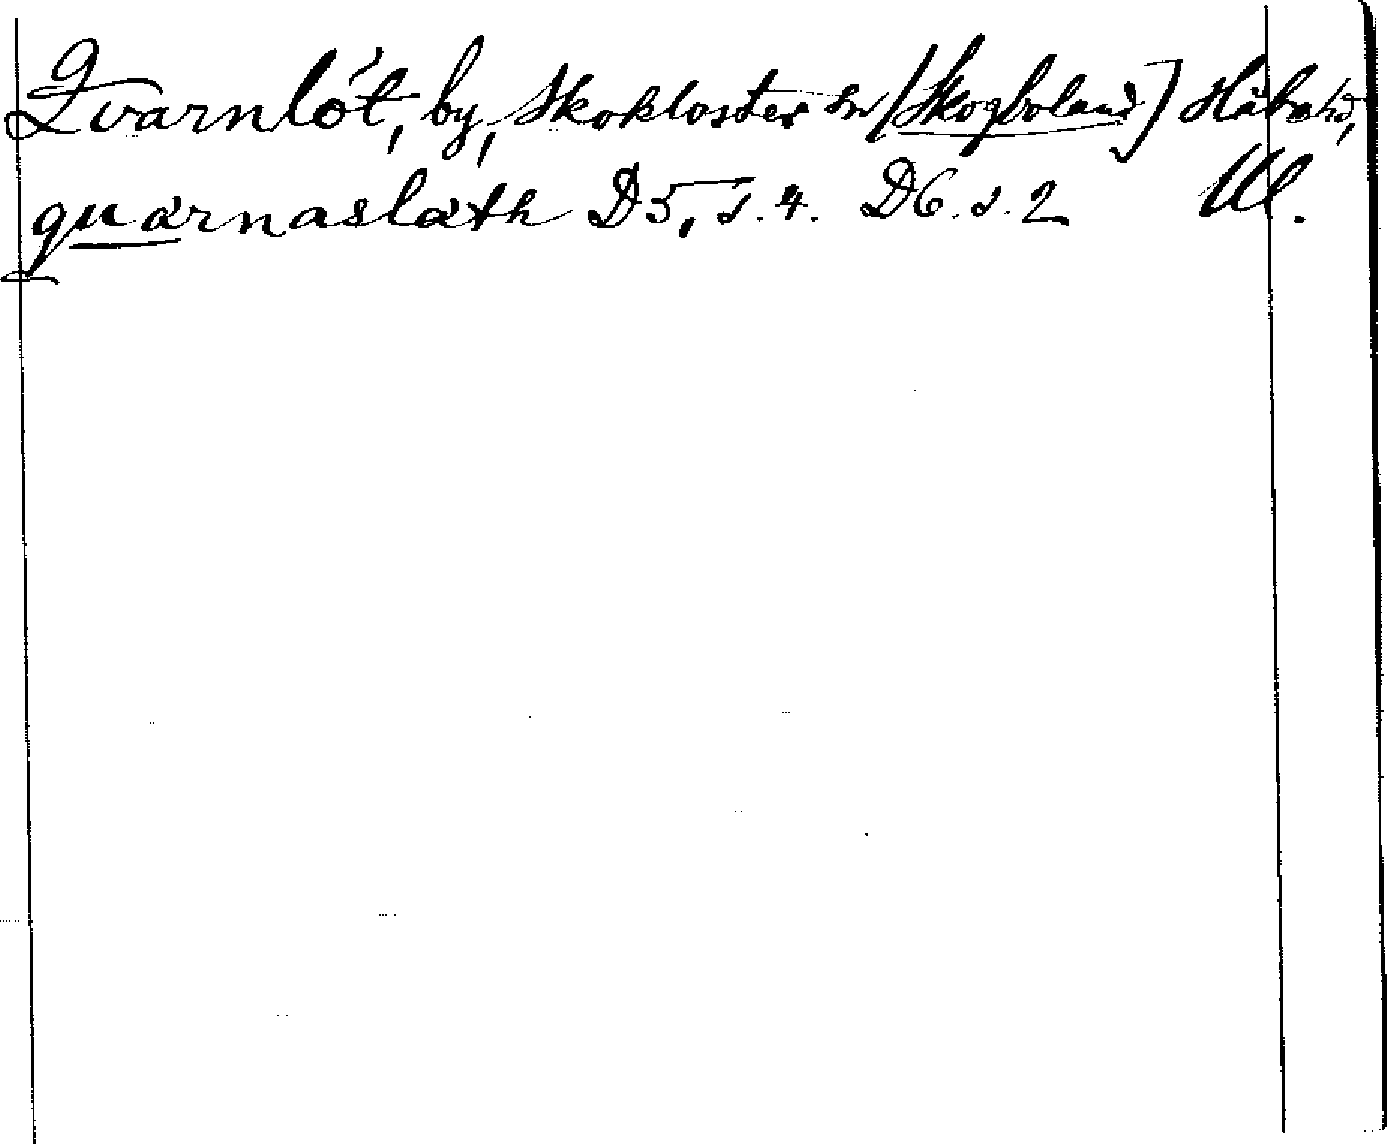 Qvarnlöt, by, Skokloster sn (Skogboland) Håbo hd,
quarnaslath D5, s. 4. D6. s. 2 Ul.